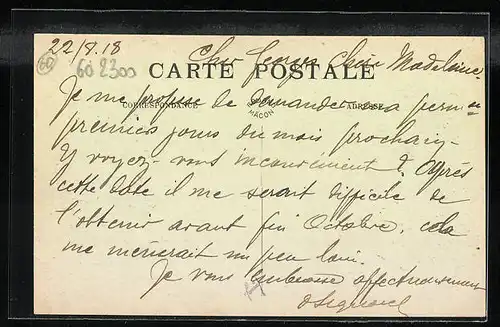 22/8.18
60
60 2300
Cher Georges Chère Madeleine,
CARTE POSTALE
CORRESPONDANCE ADRESSE
MACON
Je me propose de demander ma perm on
premiers jours du mois prochain -
Y voyez-vous inconvenient ? Après
cette date il me serait difficile de
l'obtenir avant fin Octobre, cela
me mènerait un peu loin.
Je vous embrasse affectueusement